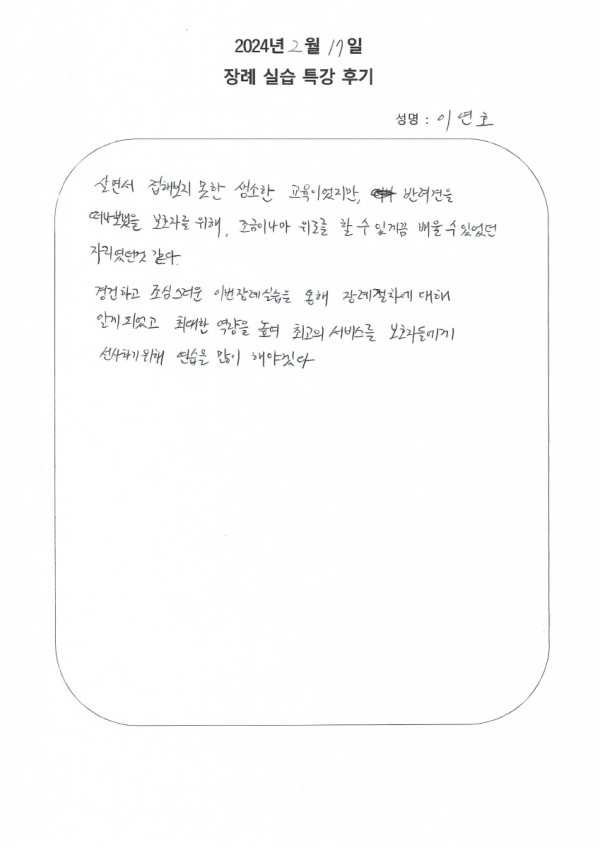 2024년 2월 17일
장례 실습 특강 후기
성명 : 이연호
살면서 접해보지 못한 생소한 교육이었지만, 반려견을
떠나보냈을 보호자를 위해, 조금이나마 위로를 할 수 있게끔 배울 수 있었던
자리였던것 같다.
경건하고 조심스러운 이번 장례실습을 통해 장례절차에 대해
알게 되었고 최대한 역량을 높여 최고의 서비스를 보호자들에게
선사하기 위해 연습을 많이 해야겠다